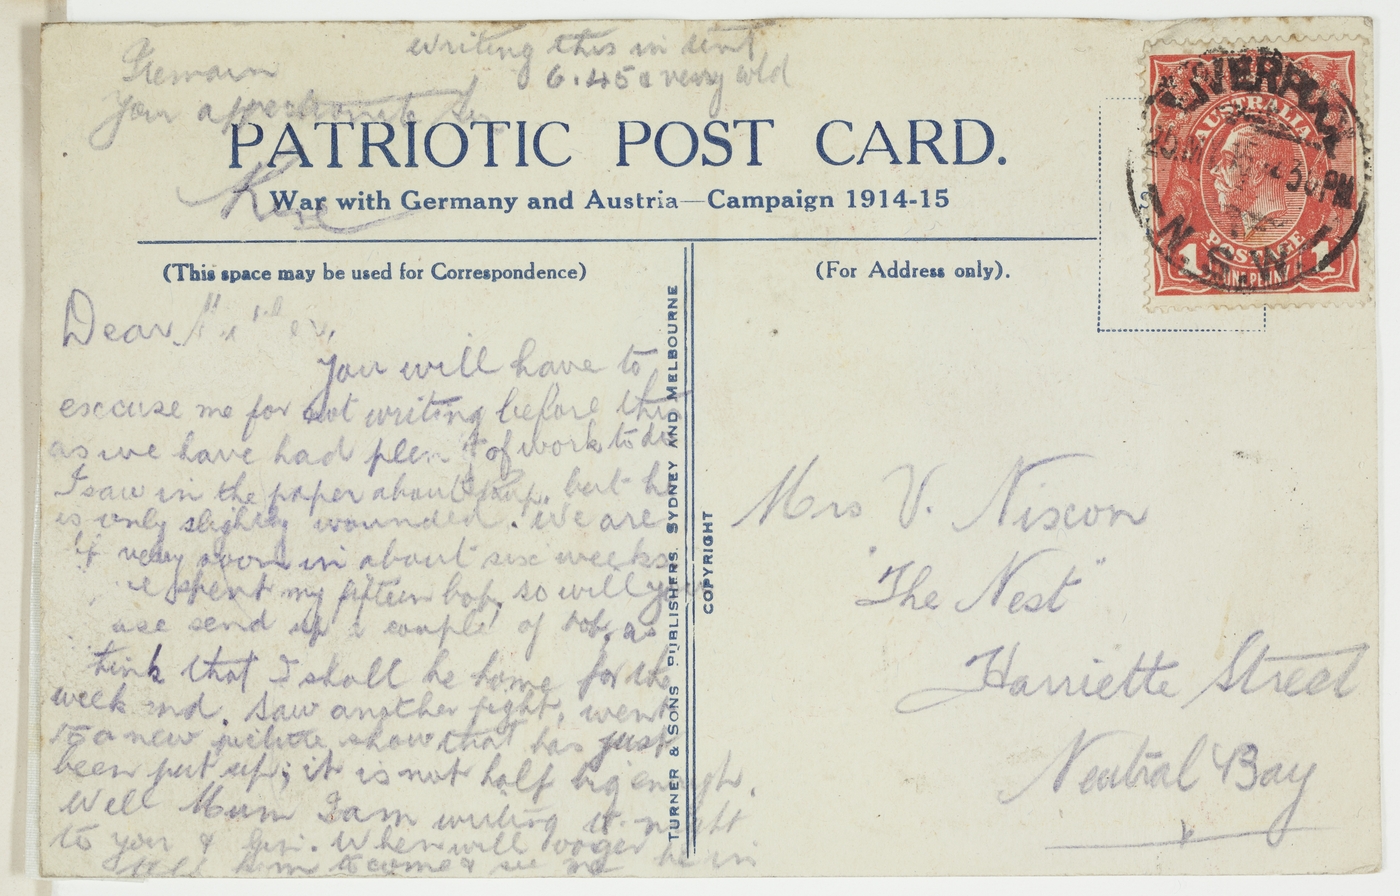 writing this in tent
6.45 & very cold
I remain
Your affectionate Son
PATRIOTIC POST CARD.
War with Germany and Austria—Campaign 1914-15
LIVERPOOL
AUSTRALIA
30 PM
N.S.W.
POSTAGE
1 ONE PENNY 1
(This space may be used for Correspondence)
(For Address only).
Dear Mother,
You will have to
excuse me for not writing before this
as we have had plenty of work to do
I saw in the paper about but he
is only slightly wounded. We are
very soon in about six weeks
spent my fifteen bob, so will you
send up a couple of bob, as
think that I shall be home for the
week end. Saw another fight, went
to a new picture show that has just
been put up; it is not half big enough.
Well Mum I am writing to-night
to you & When will be in
him to come & see me
TURNER & SONS PUBLISHERS. SYDNEY AND MELBOURNE
COPYRIGHT
Mrs V. Nixon
"The Nest"
Harriette Street
Neutral Bay